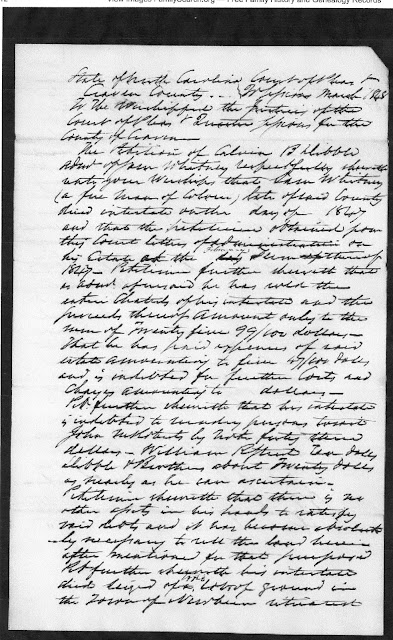 View Images FamilySearch.org — Free Family History and Genealogy Records
State of North Carolina Court of Pleas &
Craven County . . . Sessions March 1848
To the Worshipful the Justices of the
Court of Pleas & Quarter Sessions for the
County of Craven
The Petition of Calvin B Dibble
admr of Sam Whitney respectfully
unto your Worships that Sam Whitney
(a free man of Colour) late of said County
died intestate on the day of 1847
and that the petitioner obtained from
this Court letters of administration on
his Estate at the Term
1847 – Petitioner further sheweth that
as Admr aforesaid he has sold the
entire Chattels of his intestate and the
proceeds thereof amount only to the
sum of Twenty five 99/100 dollars –
That he has paid expenses of said
estate amounting to five 47/100 dolls
and is indebted for further Costs and
Charges amounting to dollars –
Pet. further sheweth that his intestate
is indebted to sundry persons to wit
John by Note forty three
dollars – William Ten dolls
Dibble & Brothers about Twenty dolls
as nearly as he can ascertain –
Petitioner sheweth that there is no
other assets in his hands to satisfy
said debts and it has become absolute
-ly necessary to sell the land herein
after mentioned for that purpose
Pet. further sheweth his intestate
died seized of a lot of ground in
the Town of Newbern situated